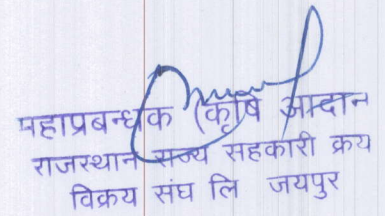 महाप्रबन्धक (कृषि आदान
राजस्थान राज्य सहकारी क्रय
विक्रय संघ लि जयपुर